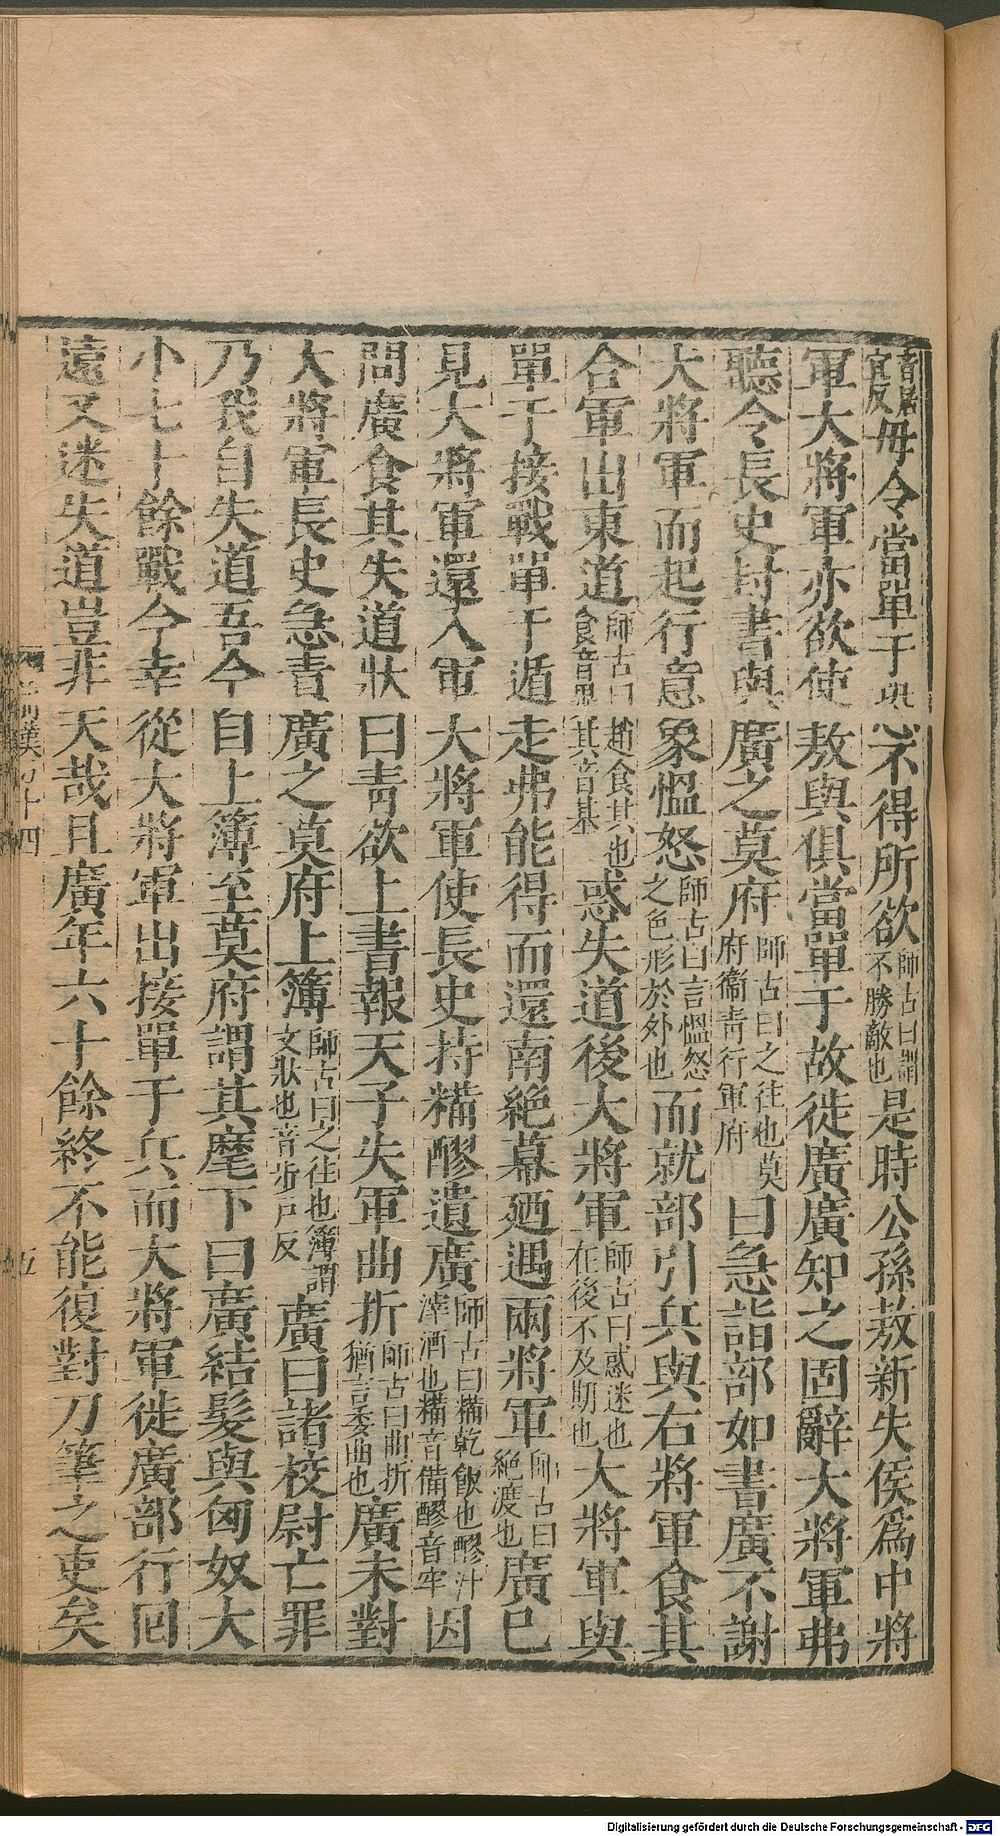 音居宜反毋令當單于與心不得所欲師古曰謂不勝敵也是時公孫敖新失侯爲中將
軍大將軍亦欲使敖與俱當單于故徙廣廣知之固辭大將軍弗
聽令長史封書與廣之莫府師古曰之往也莫府衞青行軍府曰急詣部如書廣不謝
大將軍而起行意象愠怒師古曰言愠怒之色形於外也而就部引兵與右將軍食其
合軍出東道師古曰趙食其也食音異其音基惑失道後大將軍師古曰惑迷也在後不及期也大將軍與
單于接戰單于遁走弗能得而還南絶幕廼遇兩將軍師古曰絶渡也廣巳
見大將軍還入軍大將軍使長史持糒醪遺廣師古曰糒乾飯也醪汁滓酒也糒音備醪音牢因
問廣食其失道狀曰靑欲上書報天子失軍曲折師古曰曲折猶言委曲也廣未對
大將軍長史急責廣之莫府上簿師古曰之往也簿謂文狀也音步戸反廣曰諸校尉亡罪
乃我自失道吾今自上簿至莫府謂其麾下曰廣結髮與匈奴大
小七十餘戰今幸從大將軍出接單于兵而大將軍徙廣部行囘
遠又迷失道豈非天哉且廣年六十餘終不能復對刀筆之吏矣
前漢
十四
五
Digitalisierung gefördert durch die Deutsche Forschungsgemeinschaft - DFG